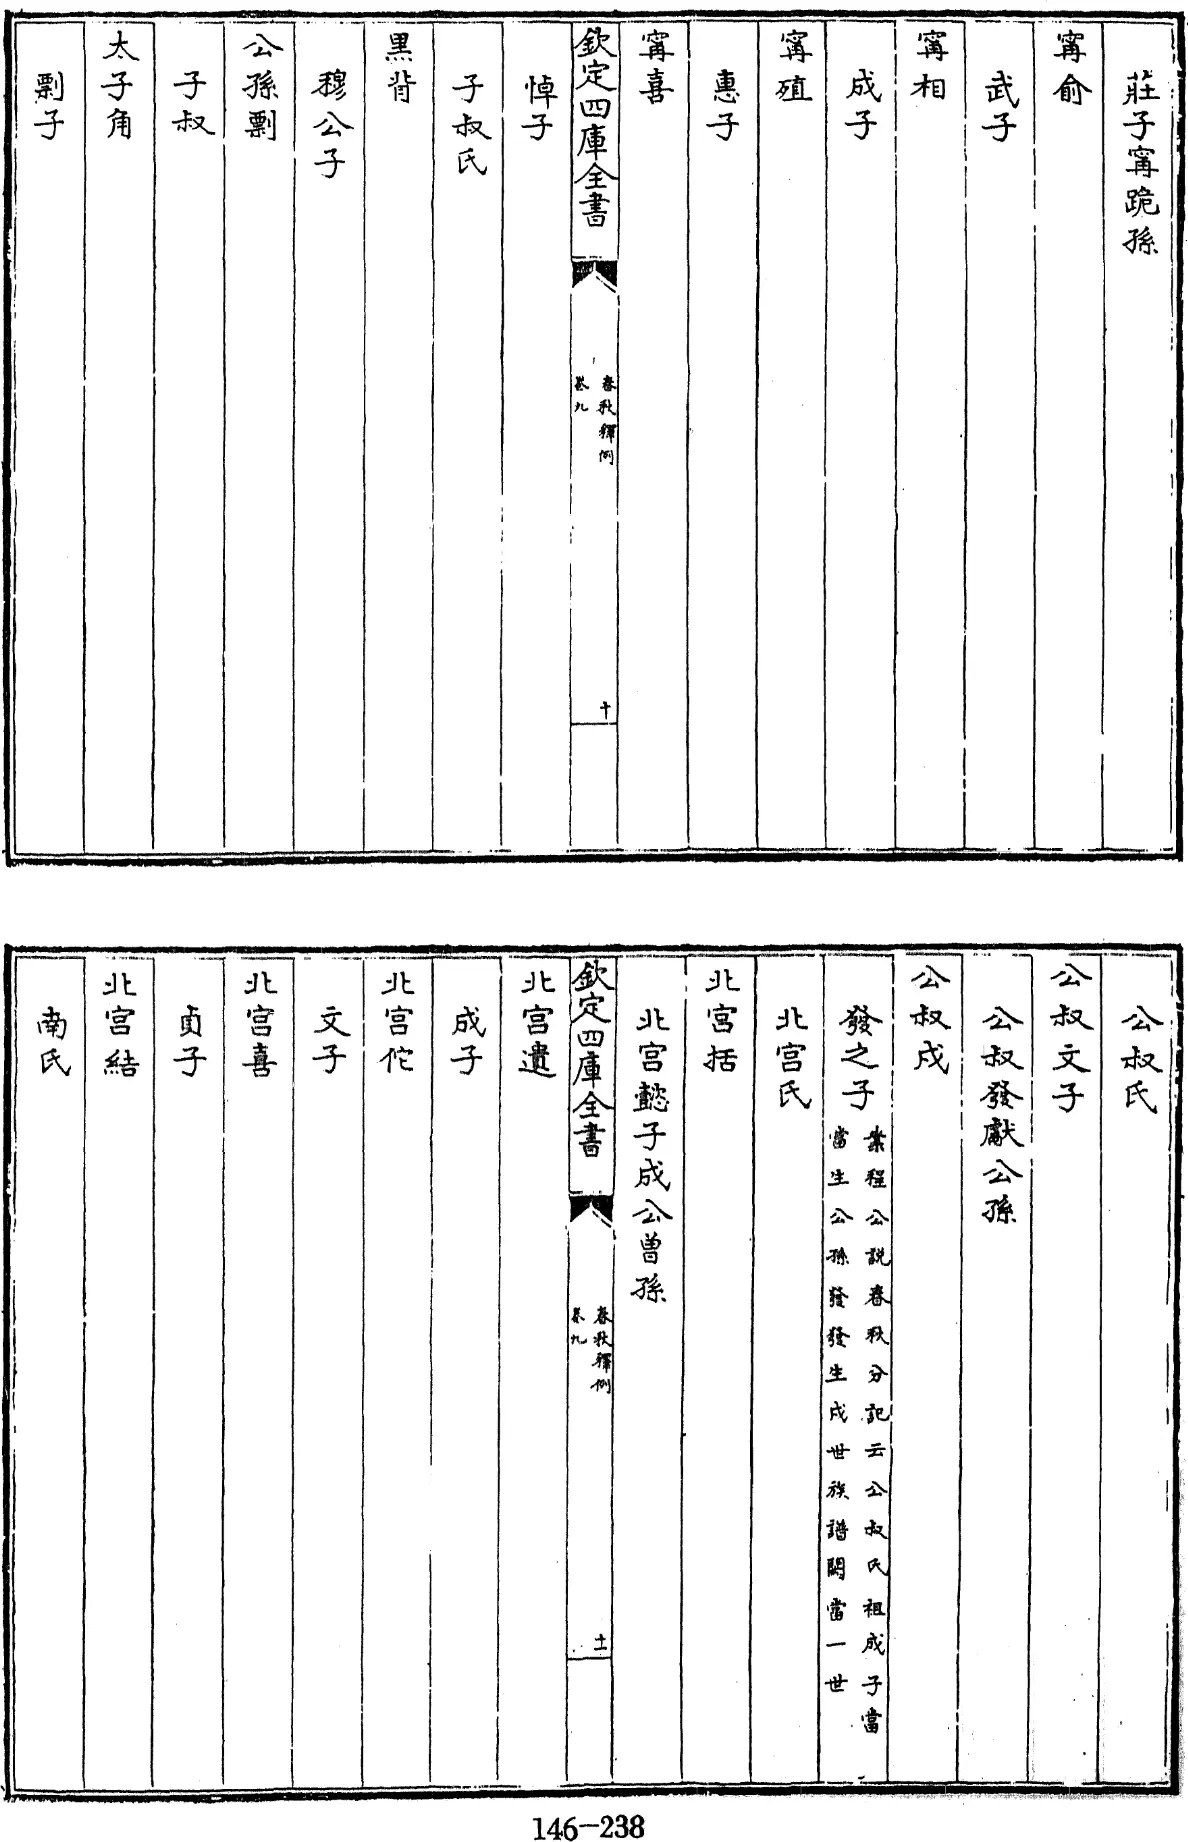 莊子甯跪孫
甯俞
武子
甯相
成子
甯殖
惠子
甯喜
欽定四庫全書
春秋釋例
卷九
十
悼子
子叔氏
黑背
穆公子
公孫剽
子叔
太子角
剽子
公叔氏
公叔文子
公叔發獻公孫
公叔戍
發之子案程公說春秋分記云公叔氏祖成子當
當生公孫發發生戍世族譜闕當一世
北宮氏
北宮括
北宮懿子成公曾孫
欽定四庫全書
春秋釋例
卷九
十一
北宮遺
成子
北宮佗
文子
北宮喜
貞子
北宮結
南氏
146-238